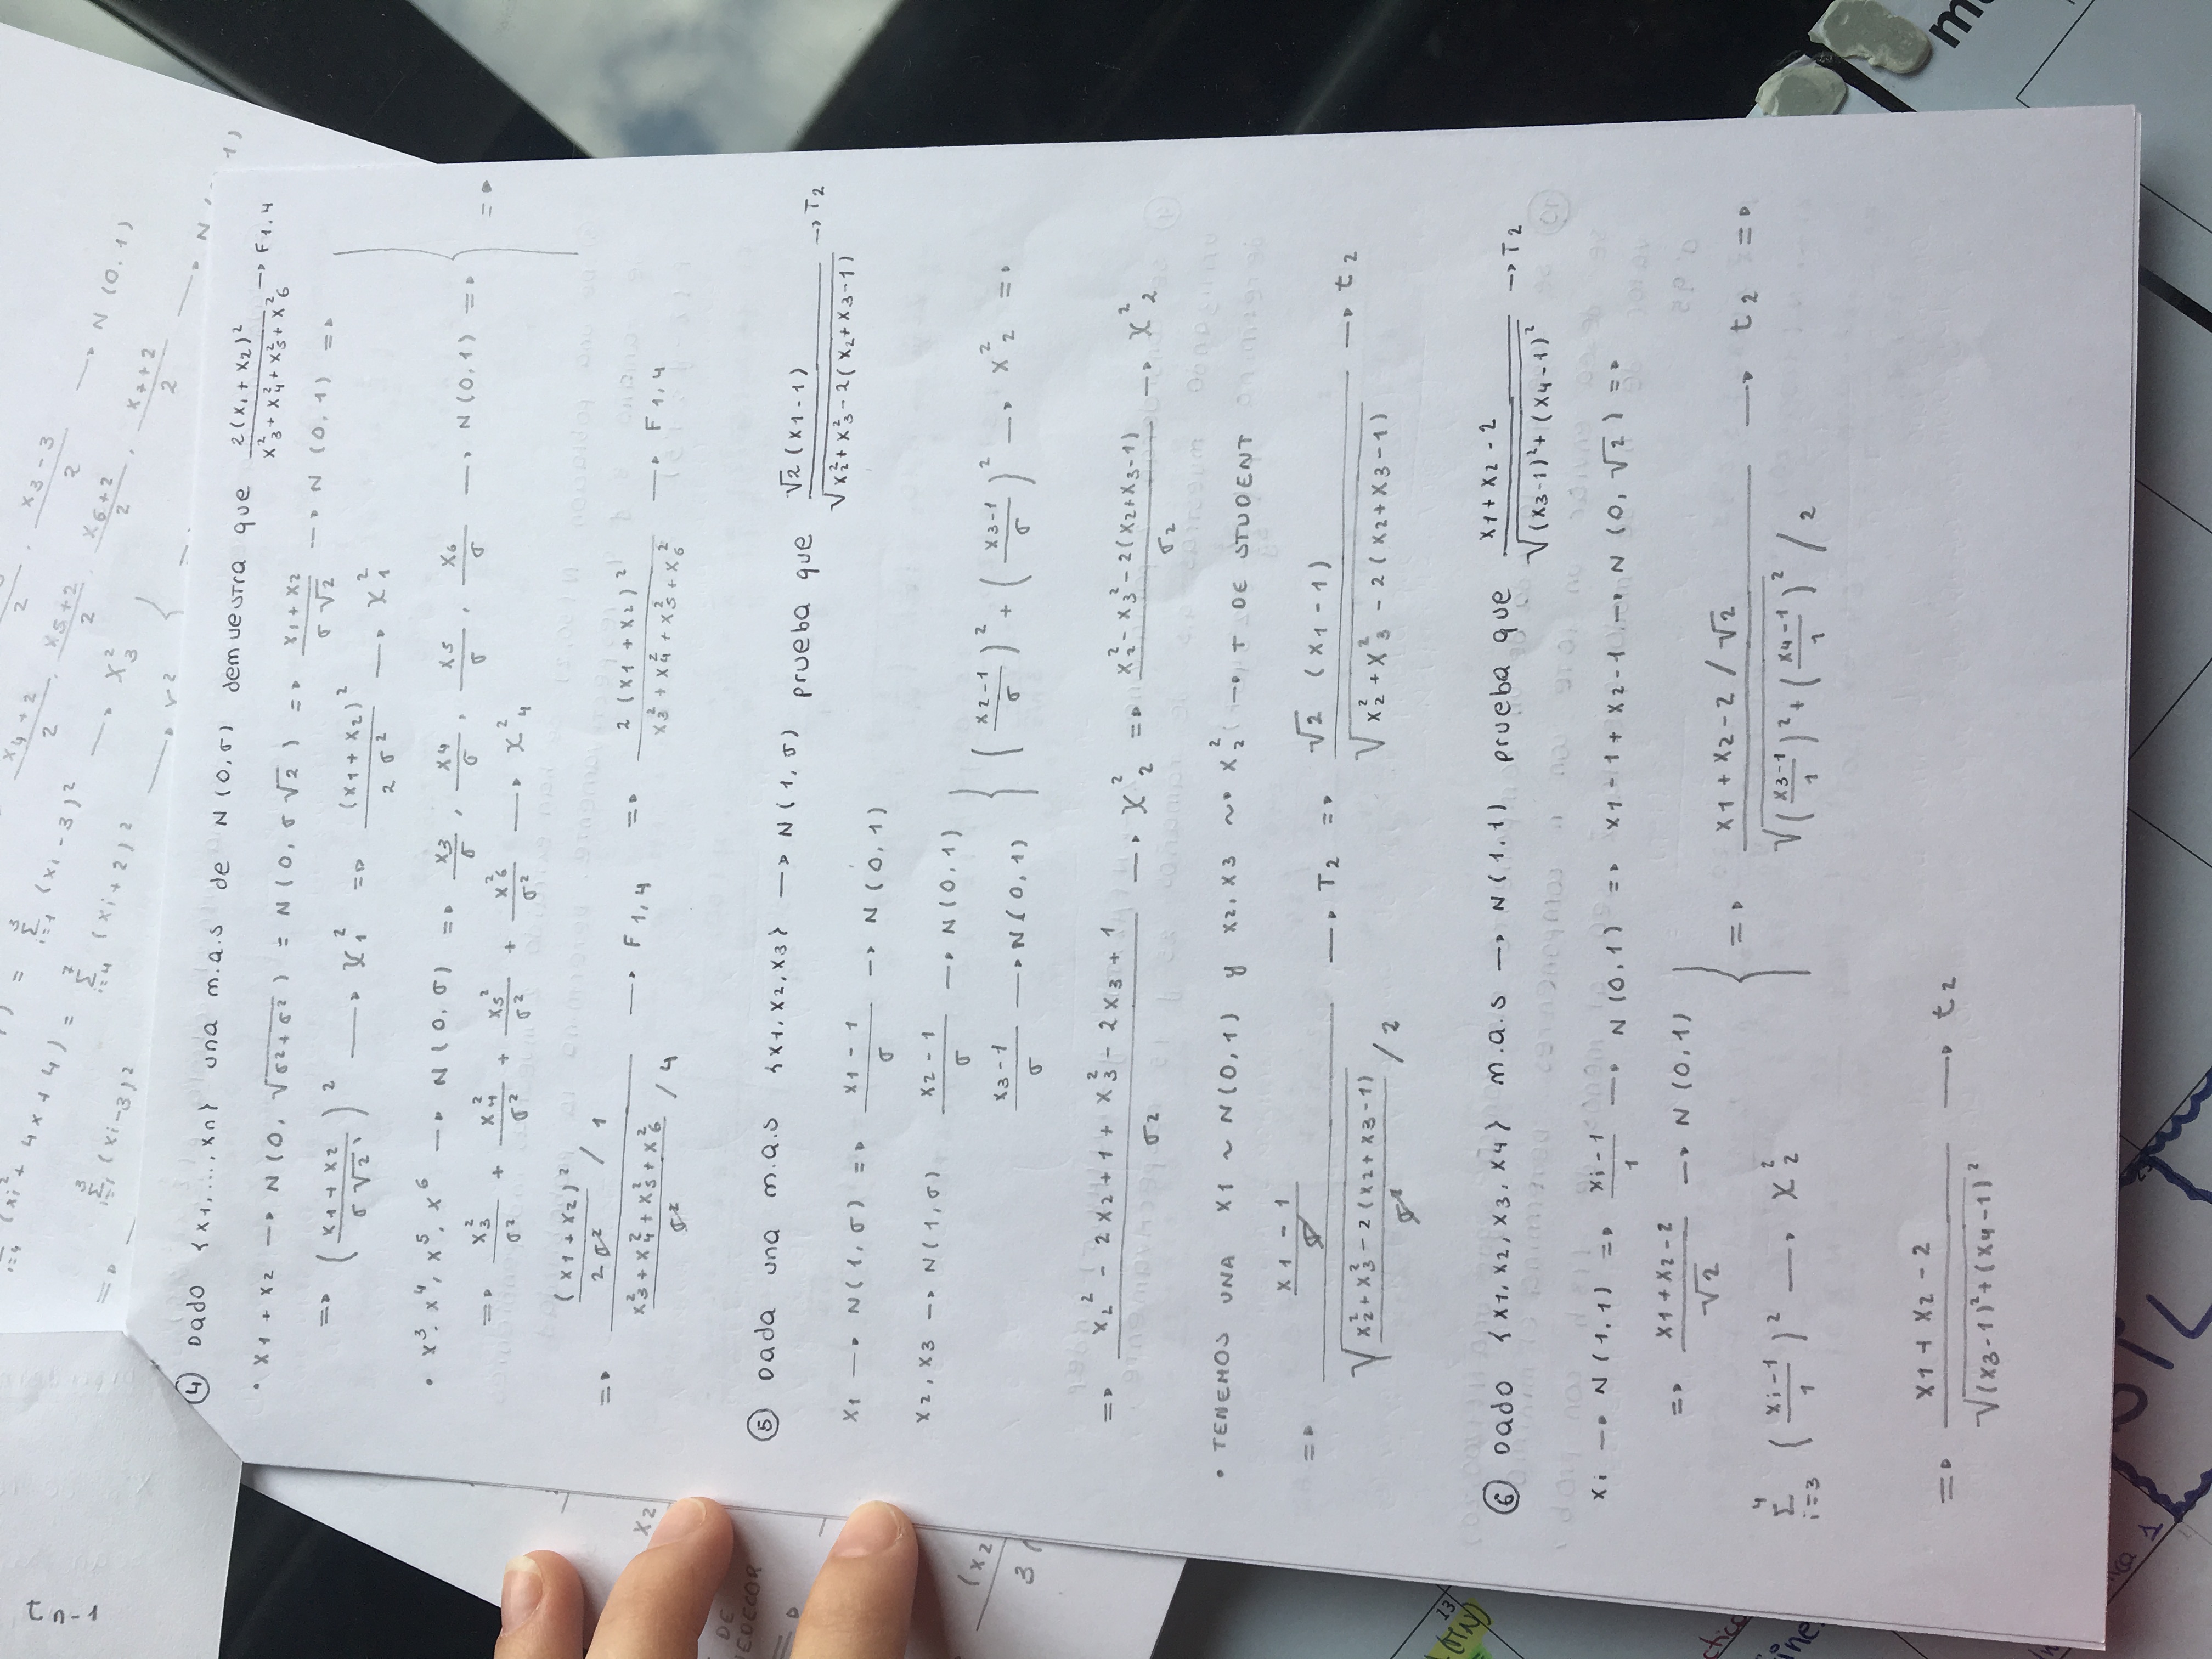 tn-1
(xi² + 4x + 4) = Σ i=1 3 (xi-3)² → X²3
x4+2/2 . x5+2/2 . x6+2/2 . x7+2/2 → N
x3-3/2 → N(0,1)
=> Σ i=1 3 (xi-3)² Σ i=4 7 (xi+2)²
④ Dado {x1,...,xn} una m.a.s de N(0,σ) demuestra que 2(x1+x2)² / x²3+x²4+x²5+x²6 → F1,4
• x1+x2 → N(0, √(σ²+σ²)) = N(0, σ√2) => x1+x2 / σ√2 → N(0,1) =>
=> (x1+x2 / σ√2)² → χ²1 => (x1+x2)² / 2σ² → χ²1
• x³. x⁴, x⁵. x⁶ → N(0,σ) => x3/σ , x4/σ , x5/σ , x6/σ → N(0,1) => } =>
=> x²3/σ² + x²4/σ² + x5²/σ² + x²6/σ² → χ²4
=> ((x1+x2)² / 2σ² / 1) / (x²3+x²4+x²5+x²6 / σ² / 4) → F1,4 => 2(x1+x2)² / x²3+x²4+x²5+x²6 → F1,4
⑤ Dada una m.a.s {x1,x2,x3} → N(1,σ) prueba que √2(x1-1) / √(x²2+x²3-2(x2+x3-1)) → T2
x1 → N(1,σ) => x1-1 / σ → N(0,1)
x2,x3 → N(1,σ) x2-1 / σ → N(0,1)
x3-1 / σ → N(0,1) } (x2-1 / σ)² + (x3-1 / σ)² → χ²2 =>
=> x2² - 2x2+1 + x²3 - 2x3+1 / σ2 → χ²2 => x²2-x²3-2(x2+x3-1) / σ2 → χ²2
• TENEMOS UNA x1 ~ N(0,1) y x2,x3 ~ χ²2 → T DE STUDENT
=> (x1-1 / σ) / √(x²2+x²3-2(x2+x3-1) / σ²) / 2 → T2 => √2 (x1-1) / √(x²2+x²3-2(x2+x3-1)) → t2
⑥ Dado {x1,x2,x3,x4} m.a.s → N(1,1) prueba que x1+x2-2 / √((x3-1)²+(x4-1)²) → T2
xi → N(1,1) => xi-1 / 1 → N(0,1) => x1-1+x2-1 → N(0,√2) =>
=> x1+x2-2 / √2 → N(0,1)
Σ i=3 4 (xi-1 / 1)² → χ²2 } => x1+x2-2/√2 / √((x3-1 / 1)²+(x4-1 / 1)²) / 2 → t2 =>
=> x1+x2-2 / √((x3-1)²+(x4-1)²) → t2
x2
DE
(x2
3(
13